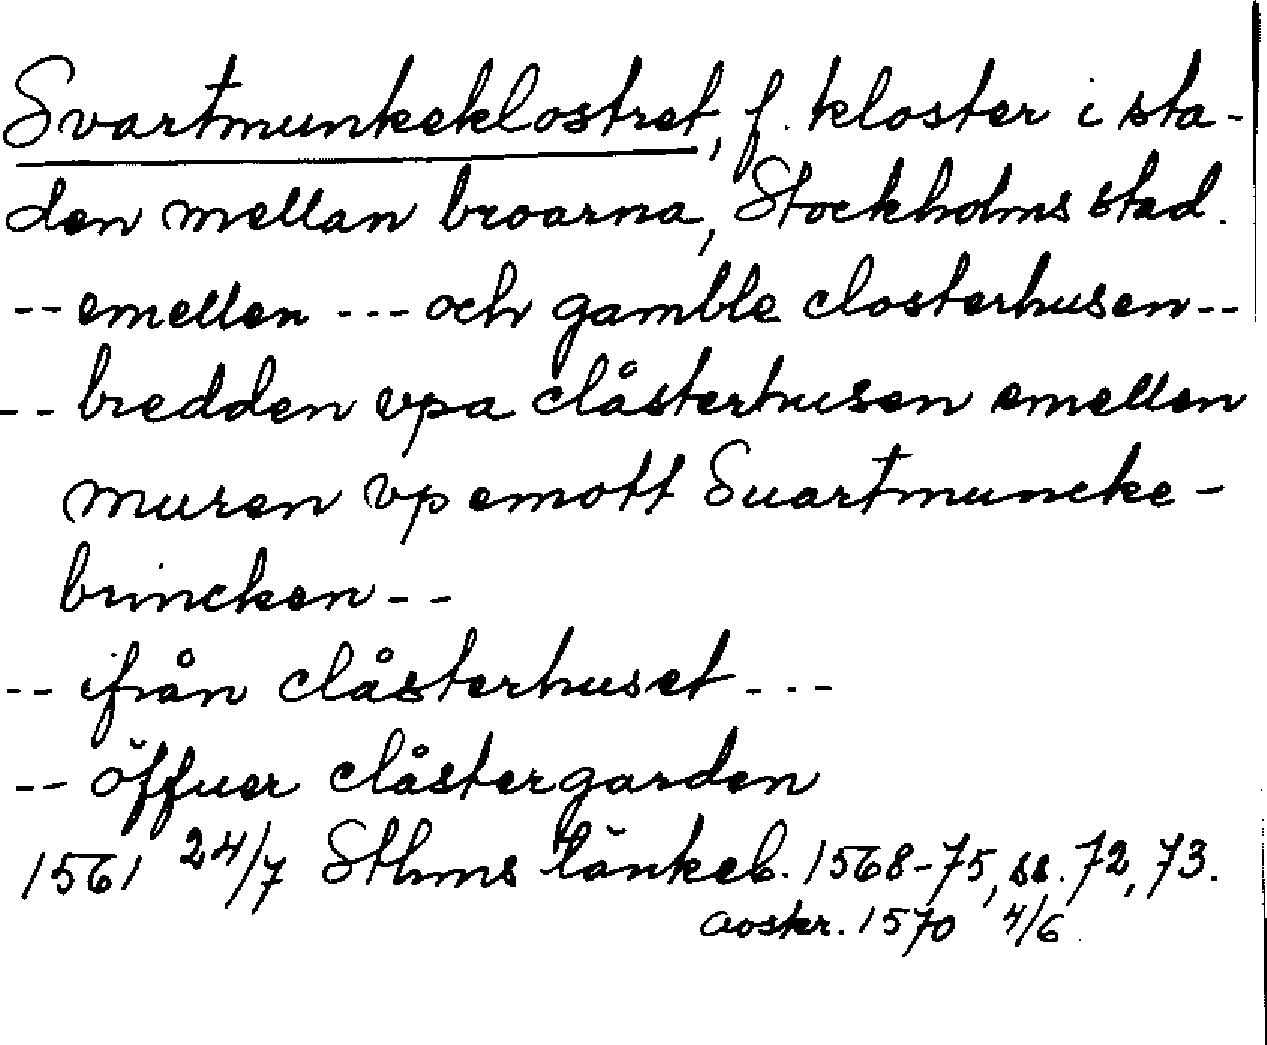 Svartmunkeklostret, f. kloster i sta-
den mellan broarna, Stockholms stad.
-- emellen --- och gamble closterhusen --
-- bredden vpa clåsterhusen emellen
muren vp emott Suartmuncke-
brincken --
-- ifrån clåsterhuset ---
-- öffuer clåstergarden
1561 24/7 Sthms tänkeb. 1568-75, ss. 72, 73.
avskr. 1570 4/6